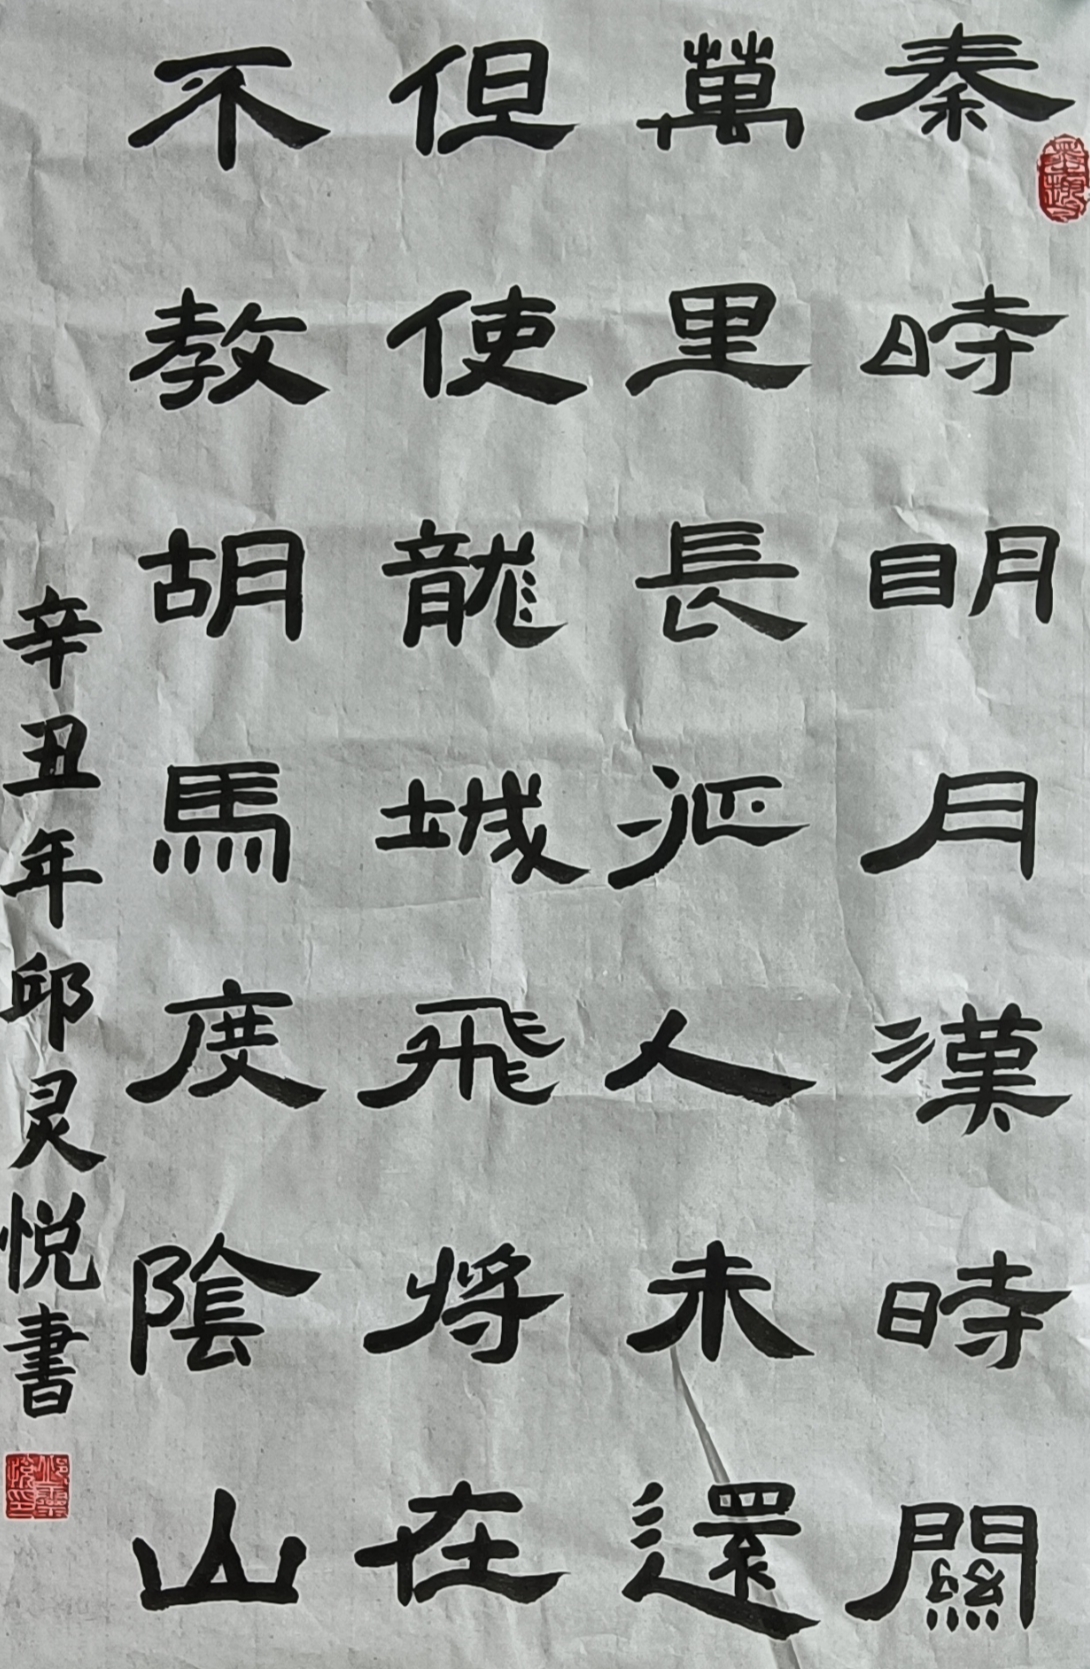 秦時眀月漢時關
萬里長征人未還
但使龍城飛將在
不教胡馬度陰山
辛丑年邱灵悦書